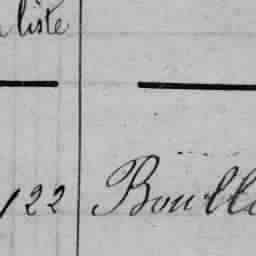 liste
122 Boull